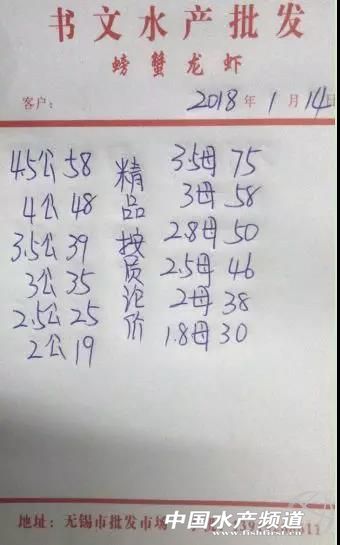 书文水产批发
螃蟹龙虾
客户: 2018年1月14日
4.5公 58
4公 48
3.5公 39
3公 35
2.5公 25
2公 19
精品按质论价
3.5母 75
3母 58
2.8母 50
2.5母 46
2母 38
1.8母 30
地址: 无锡市批发市场
中国水产频道
www.fishfirst.cn